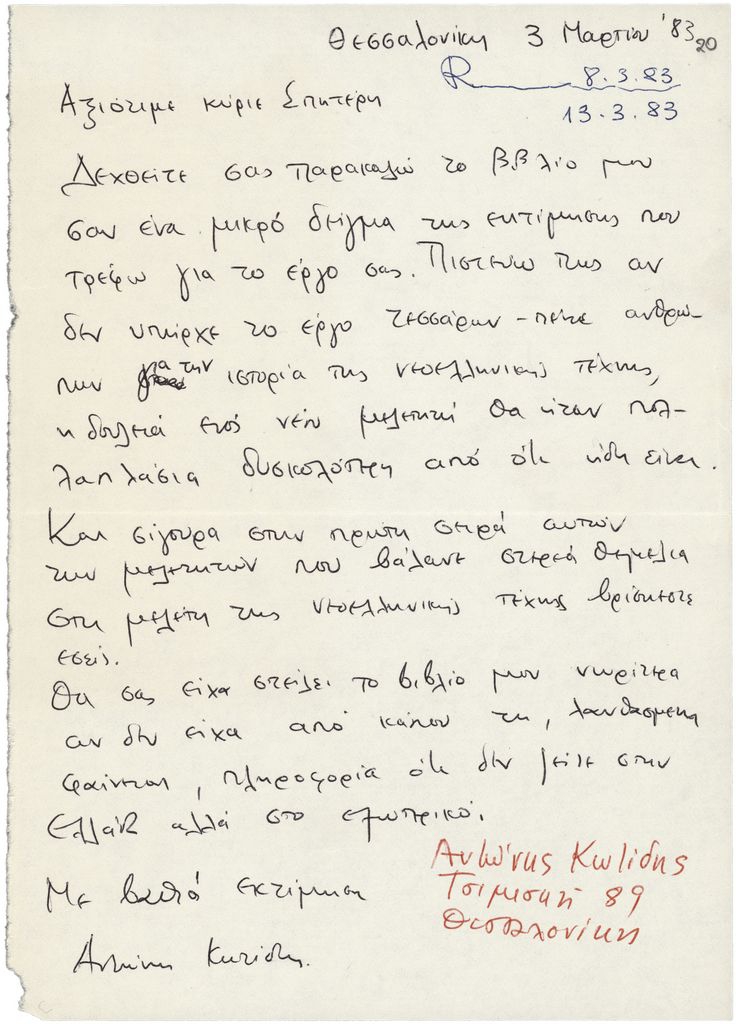 Θεσσαλονίκη 3 Μαρτίου '83
20
R 8.3.83
13.3.83
Αξιότιμε κύριε Σπητέρη
Δεχθείτε σας παρακαλώ το βιβλίο μου
σαν ένα μικρό δείγμα της εκτίμησης που
τρέφω για το έργο σας. Πιστεύω πως αν
δεν υπήρχε το έργο τεσσάρων-πέντε ανθρώ-
πων για την ιστορία της νεοελληνικής τέχνης,
η δουλειά ενός νέου μελετητή θα ήταν πολ-
λαπλάσια δυσκολότερη από ότι ήδη είναι.
Και σίγουρα στην πρώτη σειρά αυτών
των μελετητών που βάλανε στερεά θεμέλια
στη μελέτη της νεοελληνικής τέχνης βρίσκεστε
εσείς.
Θα σας είχα στείλει το βιβλίο μου νωρίτερα
αν δεν είχα από κάπου τη, λανθασμένη
φαίνεται, πληροφορία ότι δεν μείτε στην
Ελλάδα αλλά στο εξωτερικό.
Με βαθιά εκτίμηση
Αντώνης Κωτίδης.
Αντώνης Κωτίδης
Τσιμισκή 89
Θεσσαλονίκη